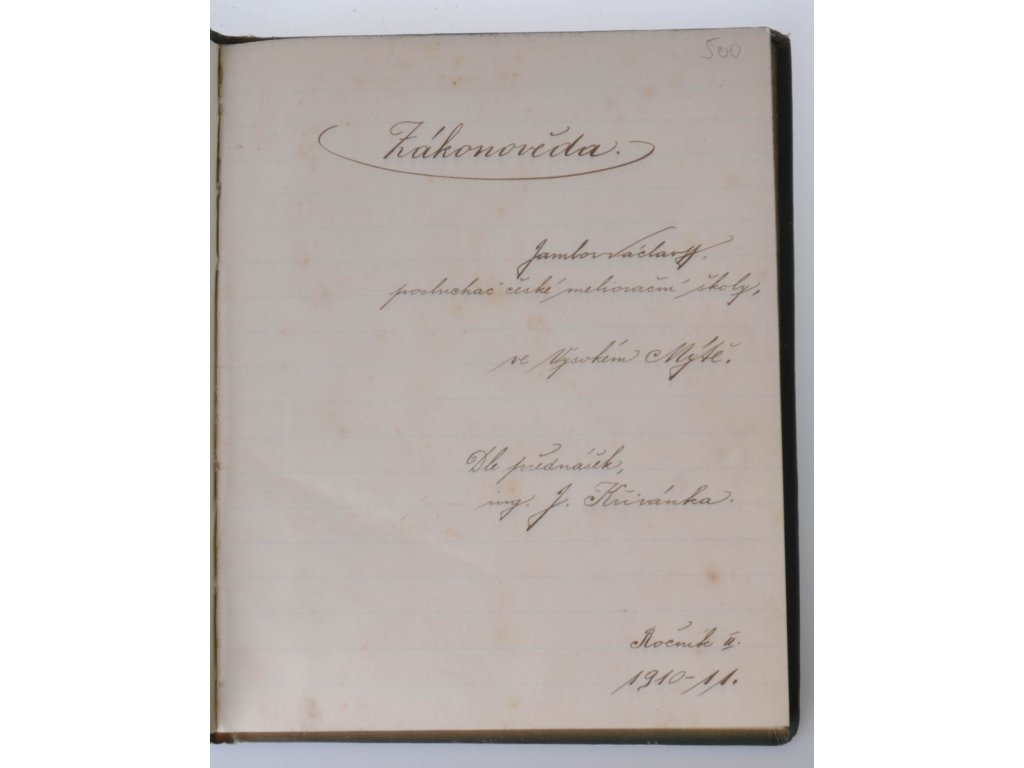 500
Zákonověda.
Václav
posluchač české meliorační školy,
ve Vysokém Mýtě.
Dle přednášek,
ing. J. Křivánka.
Ročník II.
1910-11.